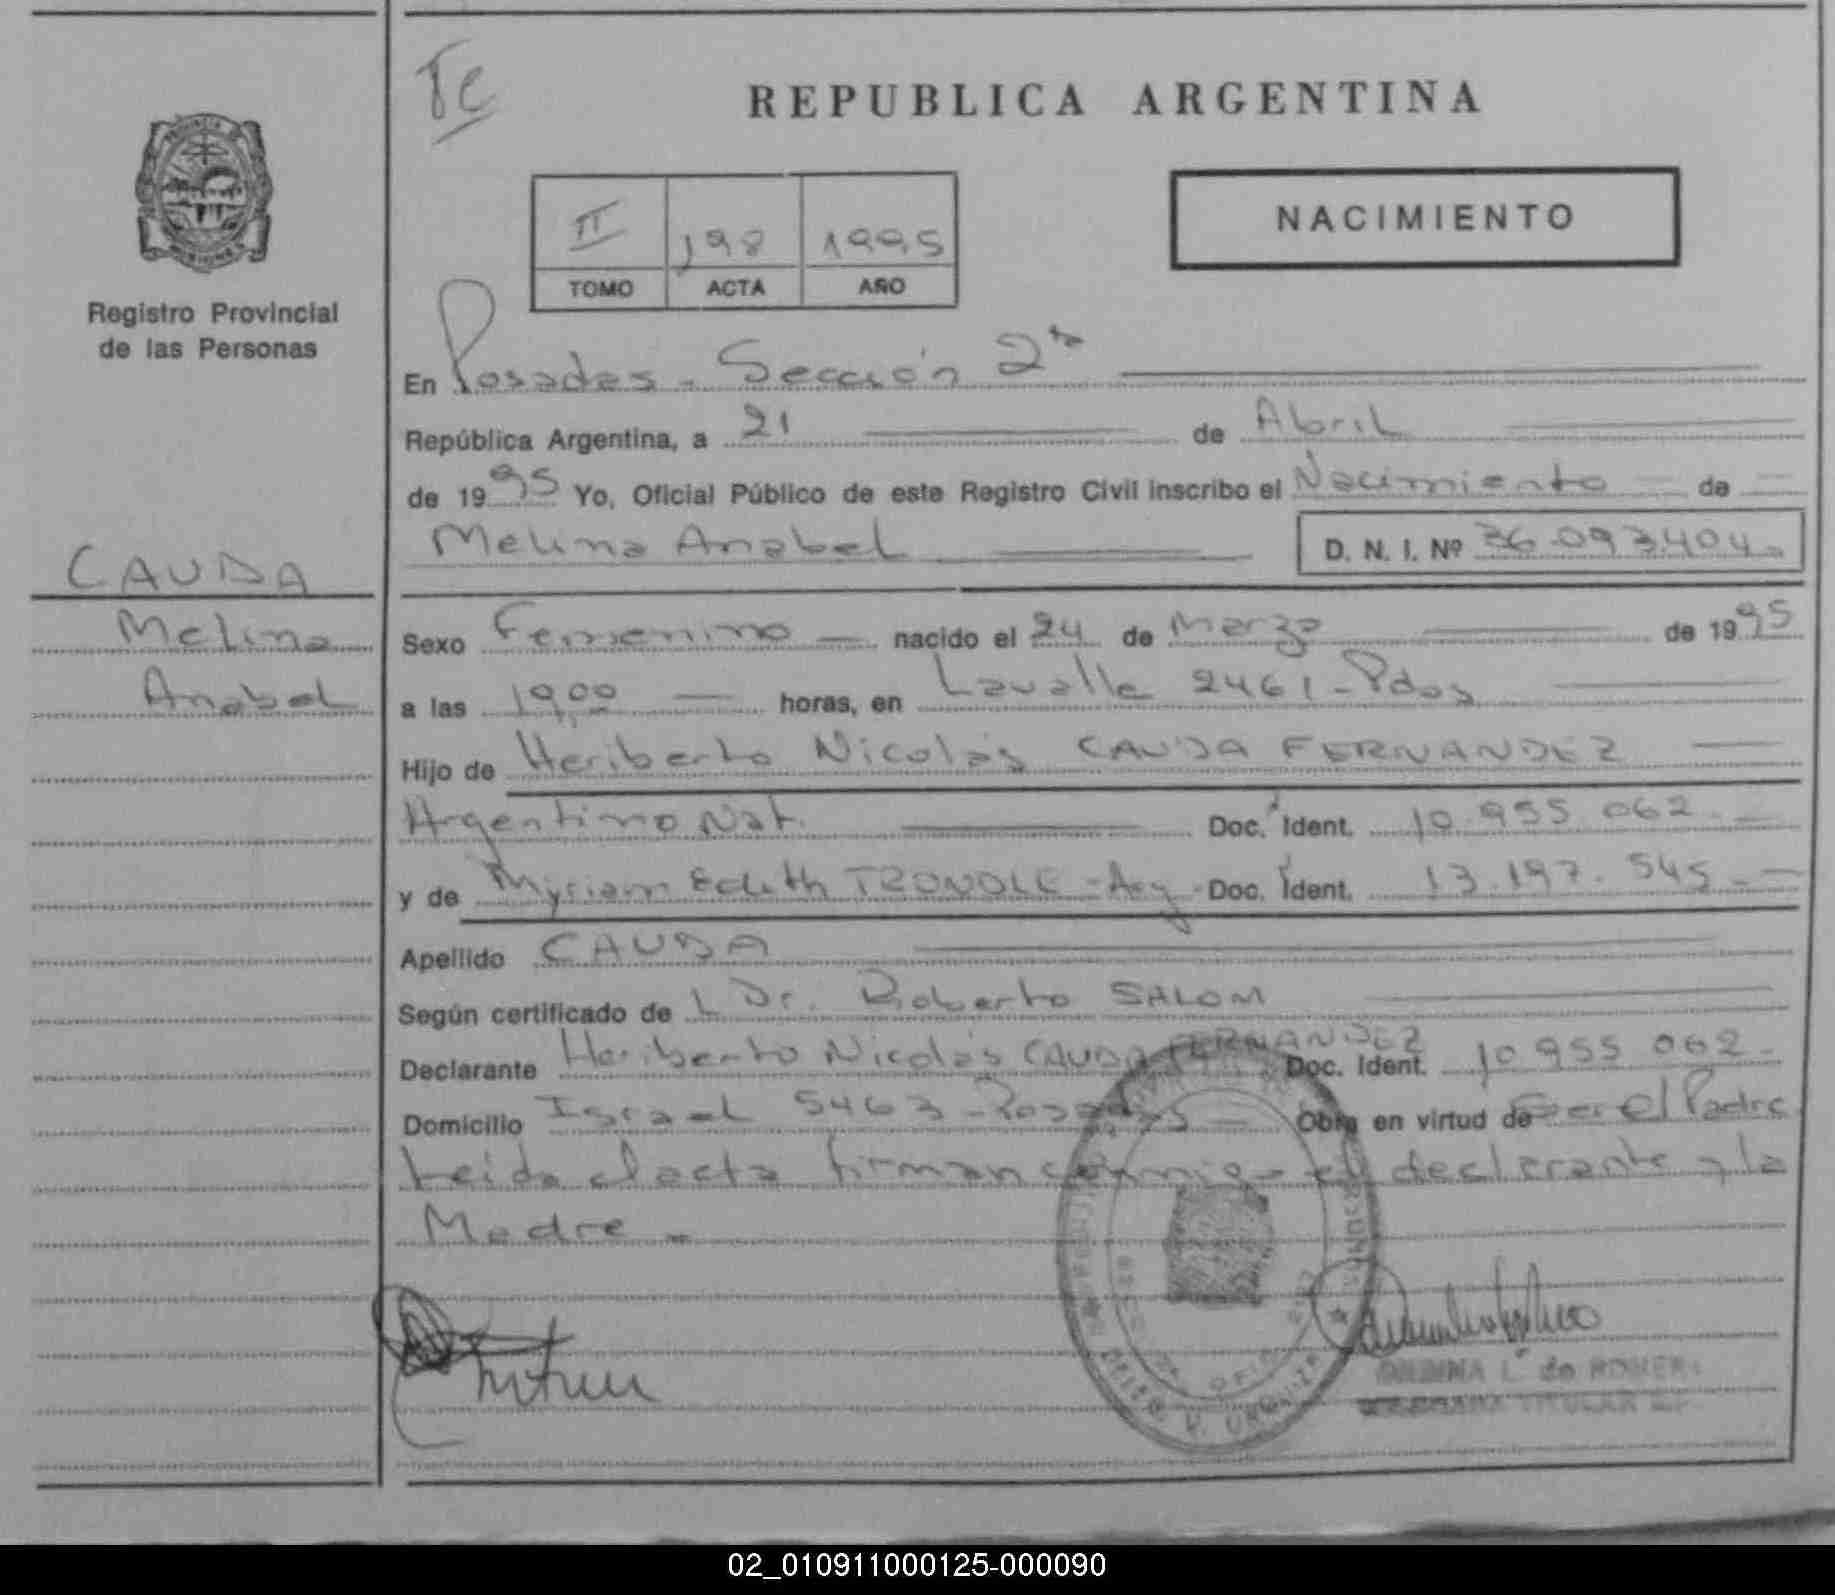 REPUBLICA ARGENTINA
II 198 1995
TOMO ACTA AÑO
NACIMIENTO
Registro Provincial
de las Personas
CAUDA
Melina
Anabel
En Posadas - Sección 2ª
República Argentina, a 21 de Abril
de 1995 Yo, Oficial Público de este Registro Civil inscribo el Nacimiento de
Melina Anabel D. N. I. Nº 36.093.404
Sexo Femenino nacido el 24 de Marzo de 1995
a las 19,00 horas, en Lavalle 2461 - Pdas
Hijo de Heriberto Nicolás CAUDA FERNANDEZ
Argentino Nat. Doc. Ident. 10.955.062
y de Myriam Edith - Arg - Doc. Ident. 13.197.545
Apellido CAUDA
Según certificado de L Dr. Roberto SALOM
Declarante Heriberto Nicolás CAUDA FERNANDEZ Doc. Ident. 10.955.062
Domicilio Israel 5463 - Posadas Obra en virtud de Ser el Padre
Leida el acta firman conmigo el declarante y la
Madre
02_010911000125-000090